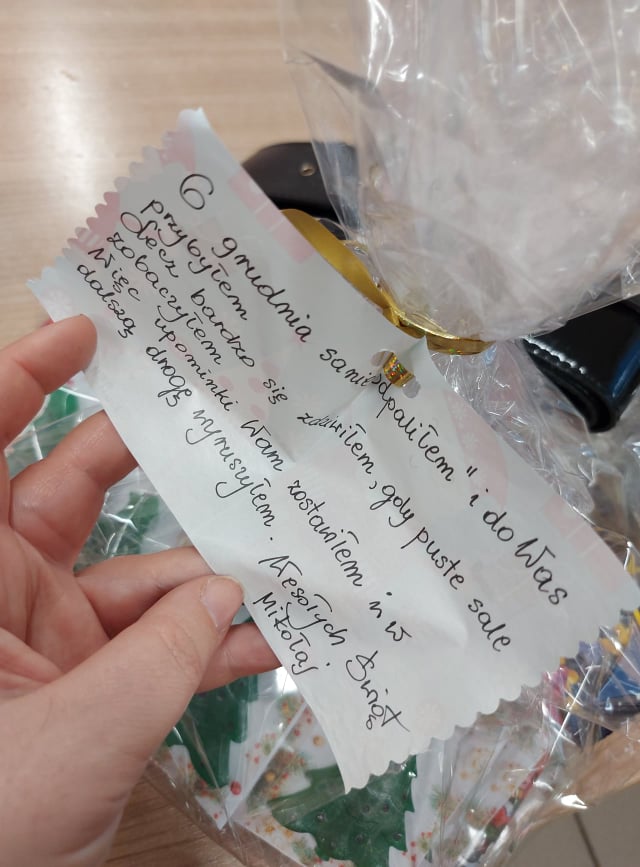 6 grudnia sanie „odpaliłem" i do Was
przybyłem
Lecz bardzo się zdziwiłem, gdy puste sale
zobaczyłem
Więc upominki Wam zostawiłem i w
dalszą drogę wyruszyłem.
Wesołych Świąt
Mikołaj